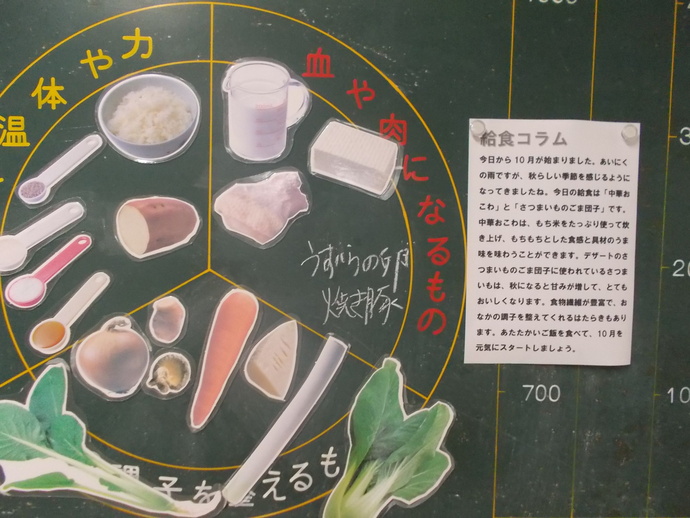 体や力
温
血や肉になるもの
うずらの卵
焼き豚
調子を整えるも
給食コラム
今日から10月が始まりました。あいにく
の雨ですが、秋らしい季節を感じるように
なってきましたね。今日の給食は「中華お
こわ」と「さつまいものごま団子」です。
中華おこわは、もち米をたっぷり使って炊
き上げ、もちもちとした食感と具材のうま
味を味わうことができます。デザートのさ
つまいものごま団子に使われているさつま
いもは、秋になると甘みが増して、とても
おいしくなります。食物繊維が豊富で、お
なかの調子を整えてくれるはたらきもあり
ます。あたたかいご飯を食べて、10月を
元気にスタートしましょう。
700